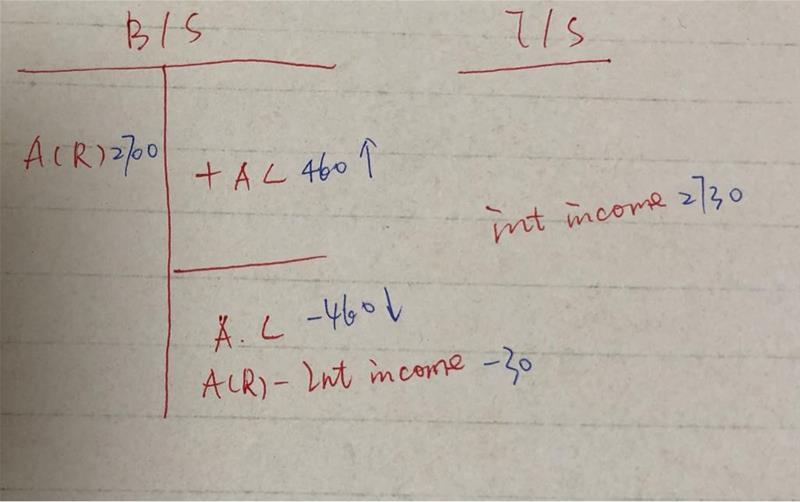 B/S
I/S
A(R) 2700
+ AL 460 ↑
int income 2730
A.L -460 ↓
A(R) - Int income -30